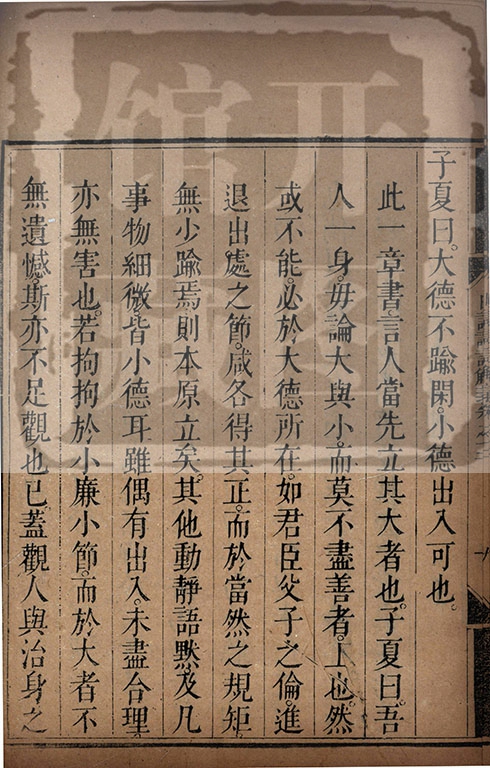 子夏曰。大德不踰閑。小德出入可也。
此一章書。言人當先立其大者也。子夏曰。吾
人一身。毋論大與小。而莫不盡善者。上也。然
或不能。必於大德所在。如君臣父子之倫。進
退出處之節。咸各得其正。而於當然之規矩。
無少踰焉。則本原立矣。其他動靜語默。及凡
事物細微。皆小德耳。雖偶有出入。未盡合理。
亦無害也。若拘拘於小廉小節。而於大者不
無遺憾。斯亦不足觀也已。蓋觀人與治身之